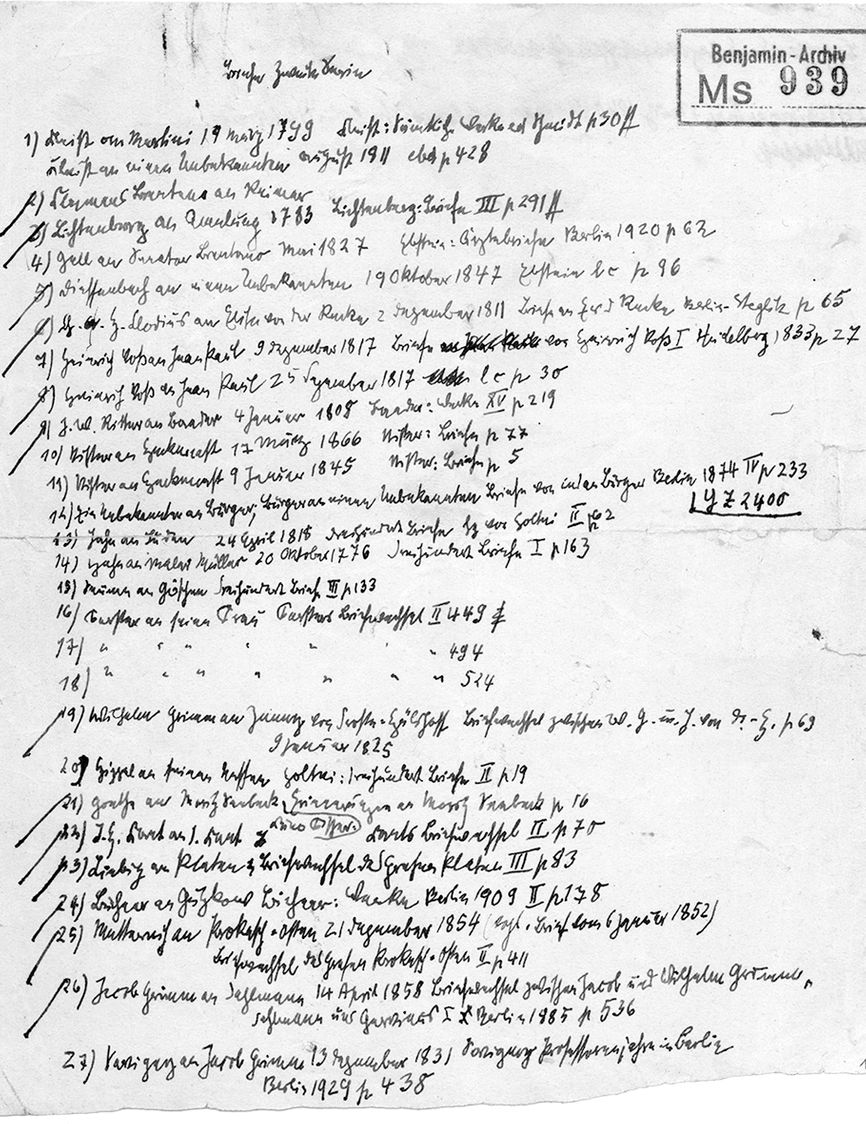 Benjamin-Archiv
Ms 939
Briefe Zweite Serie
1) Kleist an Martini 19 März 1799 Kleist: Sämtliche Werke ed Schmidt p 30 ff
Kleist an einen Unbekannten August 1811 ebd p 428
2) Clemens Brentano an Reimer
3) Lichtenberg an Amelung 1783 Lichtenberg: Briefe III p 291 ff
4) Gall an Senator Brentano Mai 1827 Ebstein: Ärztebriefe Berlin 1920 p 62
5) Dieffenbach an einen Unbekannten 19 Oktober 1847 Ebstein l c p 96
6) Ch. A. H. Clodius an Elisa von der Recke 2 Dezember 1811 Briefe an E v d Recke Berlin-Steglitz p 65
7) Heinrich Voß an Jean Paul 9 Dezember 1817 Briefe von Heinrich Voß I Heidelberg 1833 p 27
8) Heinrich Voß an Jean Paul 25 Dezember 1817 l c p 30
9) J. W. Ritter an Baader 4 Januar 1808 Baader: Werke XV p 219
10) an 17 März 1866 Briefe p 77
11) an 9 Januar 1845 Briefe p 5
12) Ein Unbekannter an Bürger; Bürger an einen Unbekannten Briefe von und an Bürger Berlin 1874 IV p 233
LYZ 2400
13) Jahn an 24 April 1818 Dreihundert Briefe hg von Holtei II p 62
14) Hahn an Maler Müller 20 Oktober 1776 Dreihundert Briefe I p 163
15) Seume an Göschen Dreihundert Briefe III p 133
16) Forster an seine Frau Forsters Briefwechsel II 449
17) " " " " " " 494
18) " " " " " " " 524
19) Wilhelm Grimm an Jenny von Droste-Hülshoff Briefwechsel zwischen W. G. u. J. von D.-H. p 69
9 Januar 1825
20) Hippel an seinen Neffen Holtei: Dreihundert Briefe II p 19
21) Goethe an Moritz Seebeck Erinnerungen an Moritz Seebeck p 16
Kuno Fischer:
22) J. H. Kant an I. Kant Kants Briefwechsel II p 70
23) Liebig an Platen Briefwechsel des Grafen Platen III p 83
24) Büchner an Gutzkow Büchner: Werke Berlin 1909 II p 178
25) Metternich an Prokesch-Osten 21 Dezember 1854 (vgl. Brief vom 6 Januar 1852)
Briefwechsel des Grafen Prokesch-Osten II p 411
26) Jacob Grimm an Dahlmann 14 April 1858 Briefwechsel zwischen Jacob und Wilhelm Grimm,
Dahlmann und Gervinus I Berlin 1885 p 536
27) Savigny an Jacob Grimm 13 Dezember 1831 Savigny Professorenjahre in Berlin
Berlin 1929 p 438